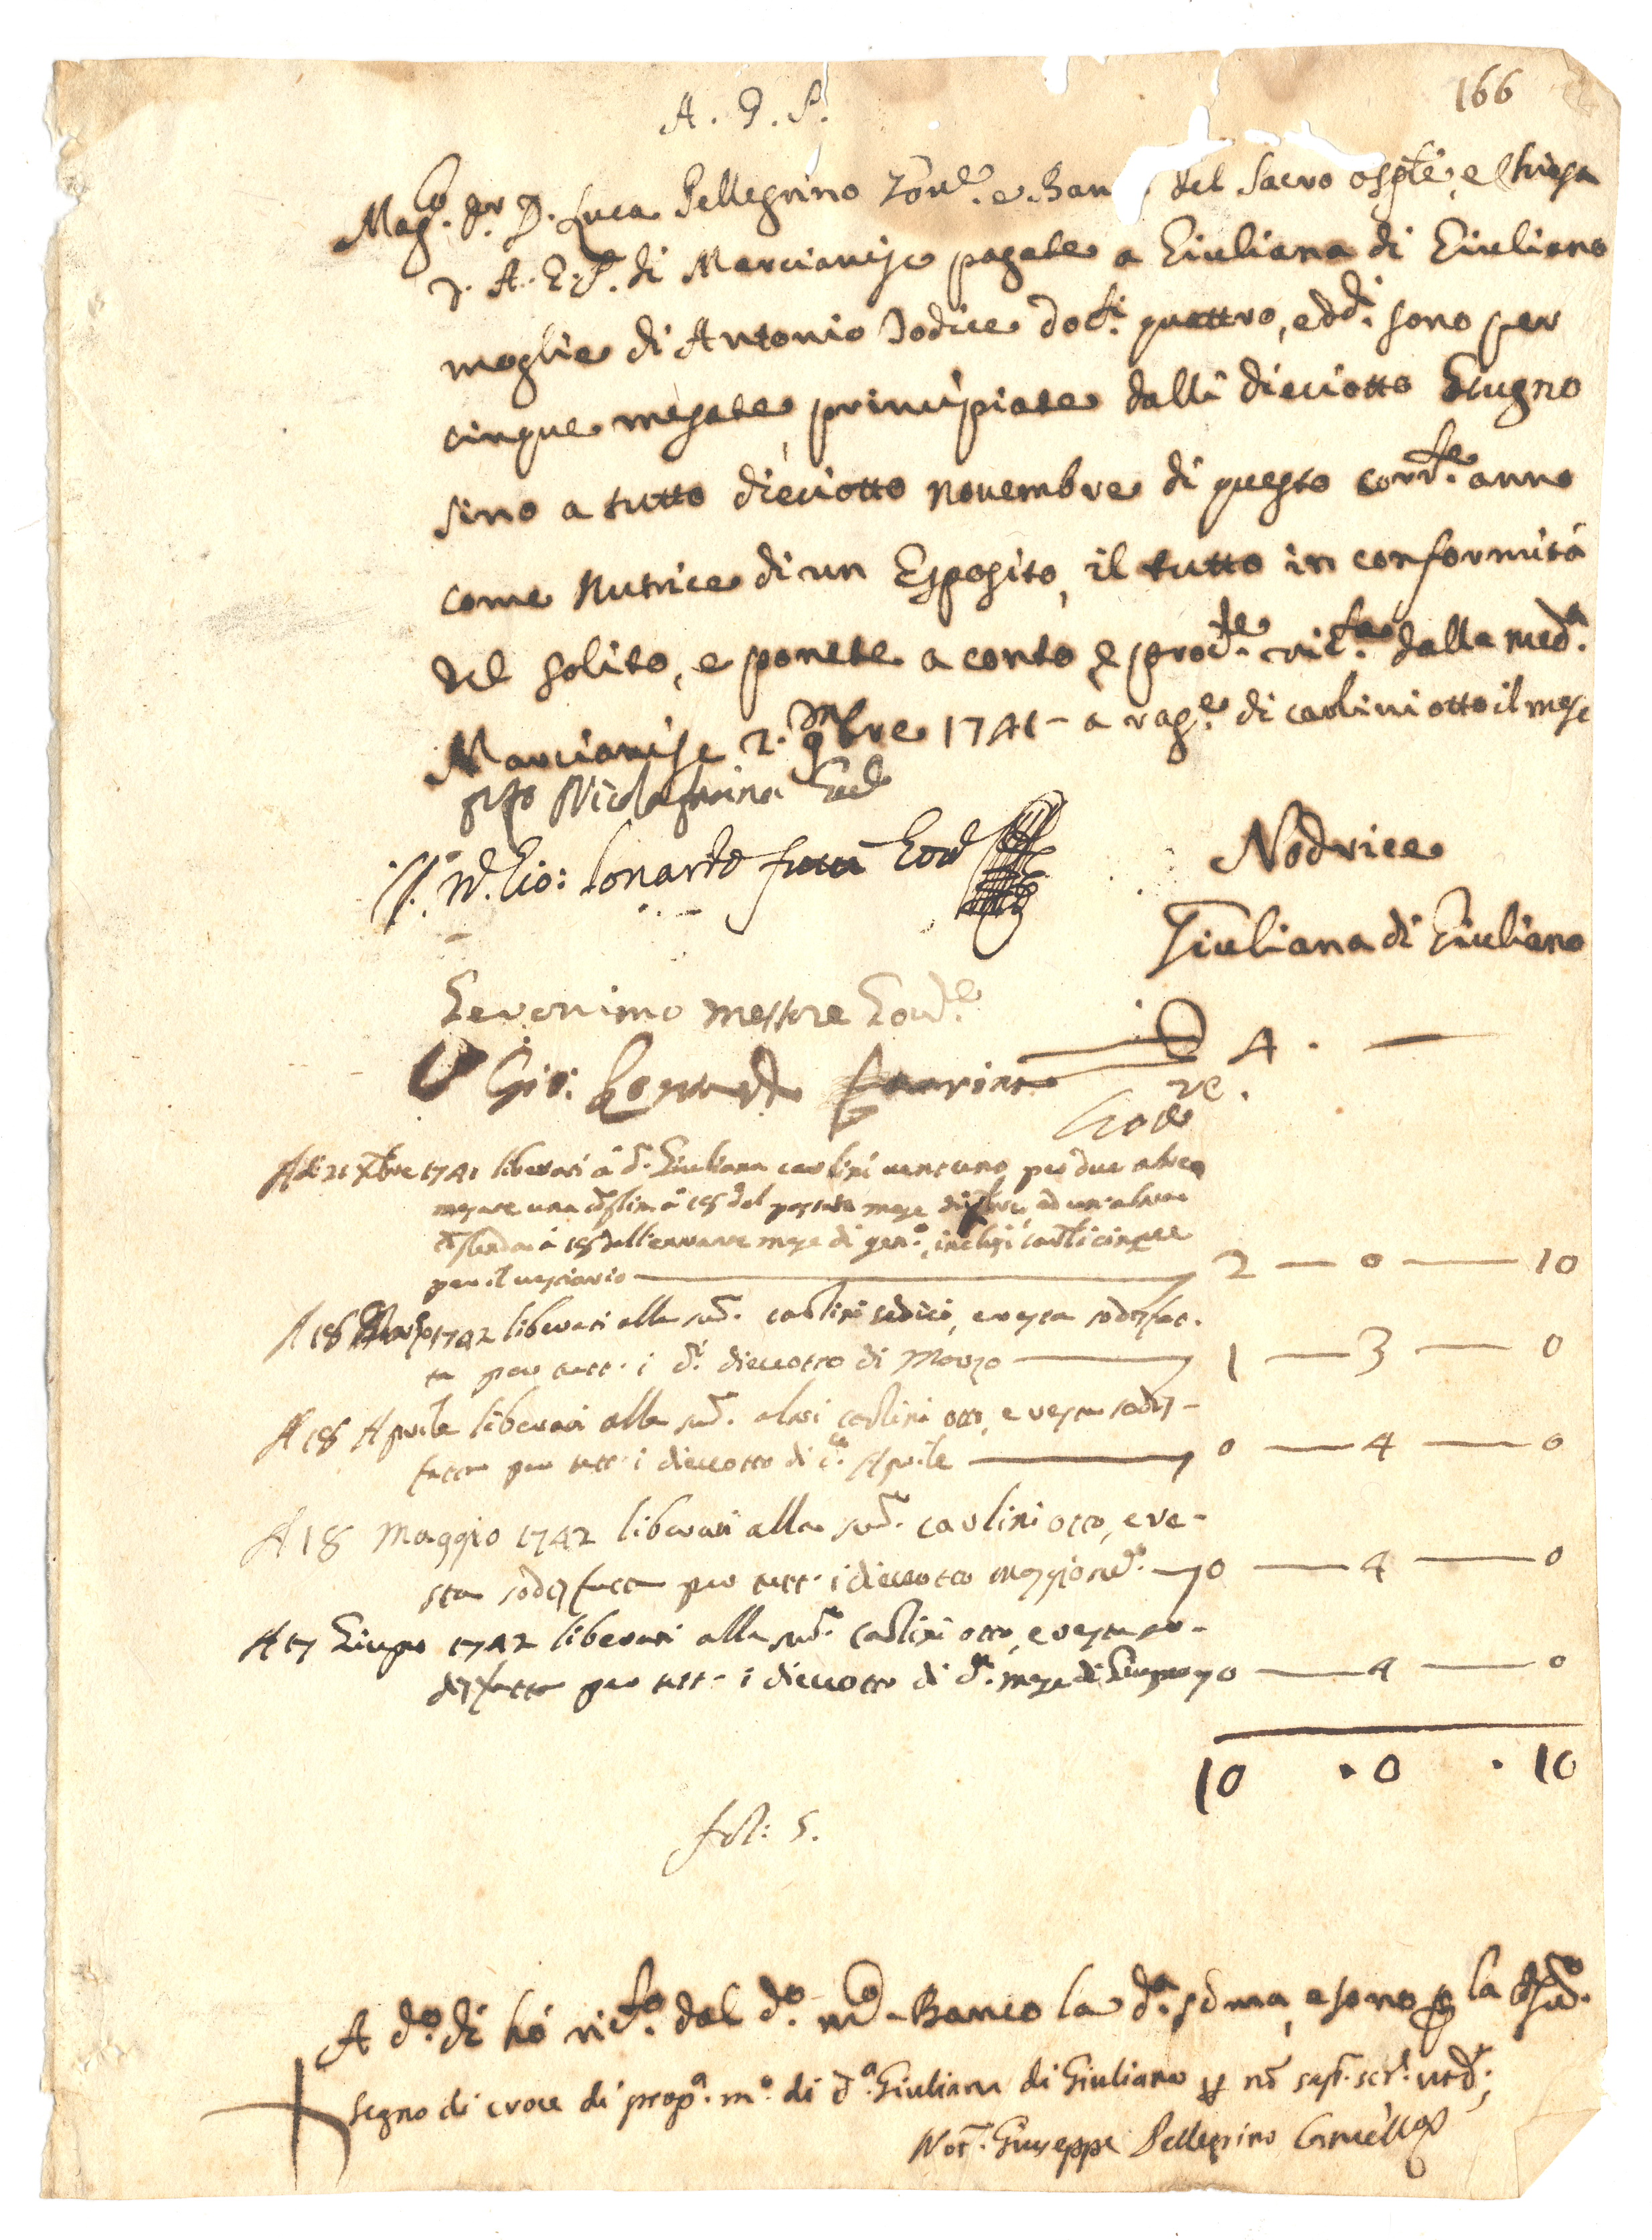 166
A. G. P.
Mag.co Sr. D. Luca Pellegrino Gov.e e Ban del Sacro osp.le, e Chiesa
D. A. G. P. di Marcianise pagate a Giuliana di Giuliano
moglie di Antonio Jodice doc.ti quattro, e dd.i sono per
cinque mesate principiate dalli dieciotto Giugno
sino a tutto dieciotto novembre di questo corr.te anno
come Nutrice di un Esposito, il tutto in conformità
del solito, e ponete a conto, prod.te ric.ta dalla med.a
Marcianise 2. 9mbre 1741 - a rag.e di carlini otto il mese
Nicola Gov.
Gio: Gov.
Nodrice
Giuliana di Giuliano
Geronimo Mestore Gov.e
4. —
Gio:
A di 21 Xbre 1741 liberati à d.a Giuliana carlini ventuno per due altre
mesate una à 18 del passato mese ad un'altra
à 18 dell'entrante mese di gen.o, inclusi carlini cinque
per il vestiario — 2 — 0 — 10
A 18 Marzo 1742 liberati alla sud.a carlini sedici, e resta sodisfat-
ta per tutt'i d.i dieciotto di Marzo — 1 — 3 — 0
A 18 Aprile liberati alla sud.a altri carlini otto, e resta sodis-
fatta per tutt'i dieciotto di d.o Aprile — 0 — 4 — 0
A 18 Maggio 1742 liberati alla sud.a carlini otto, e re-
sta sodisfatta per tutt'i dieciotto Maggio sud.o — 0 — 4 — 0
A 17 Giugno 1742 liberati alla sud.a carlini otto, e resta so-
disfatta per tutt'i dieciotto di d.o mese di Giugno 0 — 4 — 0
10 . 0 . 10
fol: 5.
A d.o di hò ric.to dal d.o Banco la d.a soma, e sono la
segno di croce di prop.a m.o di d.a Giuliana di Giuliano p nō sap.r scr.e
Not.r Giuseppe Pellegrino